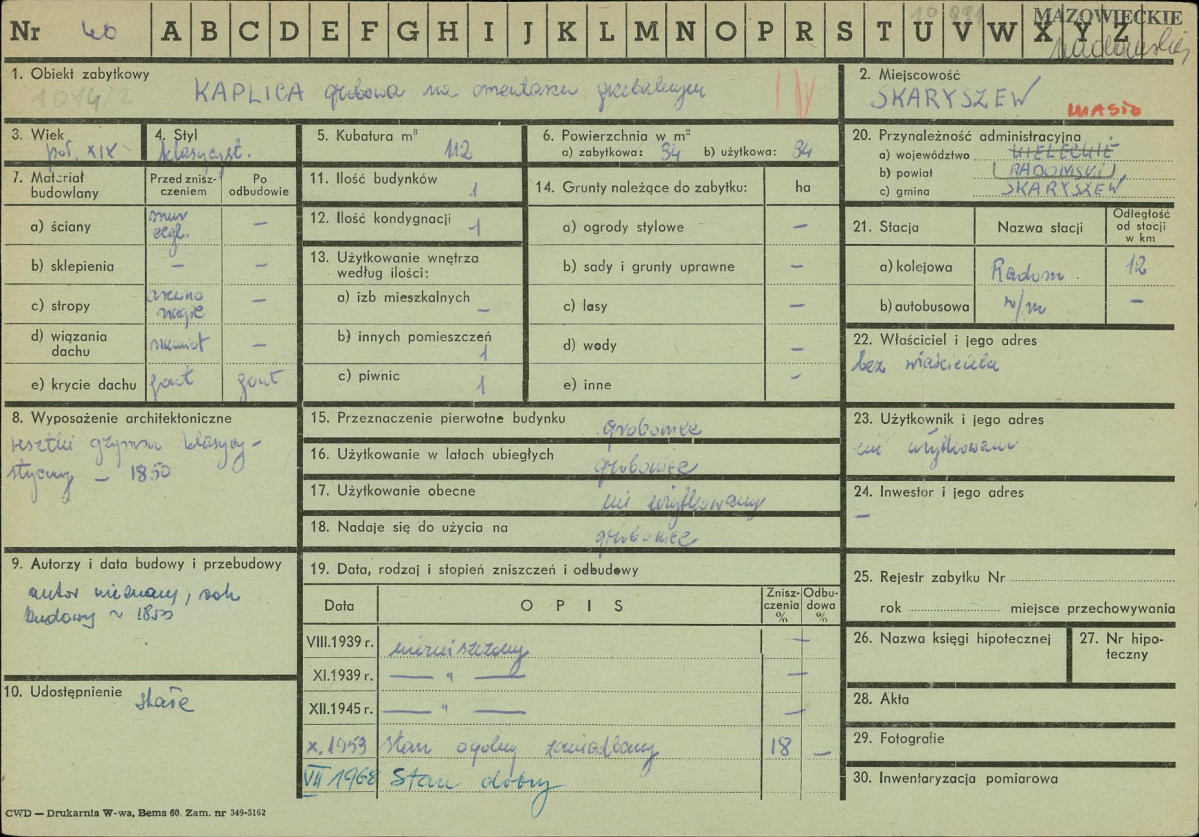 Nr 40 A B C D E F G H I J K L M N O P R S T U V W X Y Z
10 891
MAZOWIECKIE
1. Obiekt zabytkowy
1014/2
KAPLICA grobowa na cmentarzu grzebalnym IV
2. Miejscowość
SKARYSZEW
MIASTO
3. Wiek
poł. XIX
4. Styl
klasycyst.
5. Kubatura m³
112
6. Powierzchnia w m²
a) zabytkowa: 34 b) użytkowa: 34
20. Przynależność administracyjna
a) województwo KIELECKIE
b) powiat RADOMSKI
c) gmina SKARYSZEW
7. Materiał budowlany
Przed zniszczeniem
Po odbudowie
a) ściany mur cegl. —
b) sklepienia — —
c) stropy drewno —
d) wiązania dachu namiot —
e) krycie dachu gont gont
11. Ilość budynków 1
12. Ilość kondygnacji 1
13. Użytkowanie wnętrza według ilości:
a) izb mieszkalnych —
b) innych pomieszczeń 1
c) piwnic 1
14. Grunty należące do zabytku: ha
a) ogrody stylowe —
b) sady i grunty uprawne —
c) lasy —
d) wody —
e) inne —
21. Stacja
Nazwa stacji
Odległość od stacji w km
a) kolejowa Radom 12
b) autobusowa n/m —
22. Właściciel i jego adres
bez właściciela
8. Wyposażenie architektoniczne
resztki gzymsu klasycy-
styczny — 1850
15. Przeznaczenie pierwotne budynku grobowiec
16. Użytkowanie w latach ubiegłych grobowiec
17. Użytkowanie obecne nie użytkowany
18. Nadaje się do użycia na grobowiec
23. Użytkownik i jego adres
nie użytkowany
24. Inwestor i jego adres
—
9. Autorzy i data budowy i przebudowy
autor nieznany, rok
budowy ~ 1850
10. Udostępnienie
stałe
19. Data, rodzaj i stopień zniszczeń i odbudowy
Data OPIS Zniszczenia % Odbudowa %
VIII.1939 r. niezniszczony —
XI.1939 r. — „ — —
XII.1945 r. — „ — —
X.1959 stan ogólny zaniedbany 18 —
VII 1968 Stan dobry
25. Rejestr zabytku Nr
rok miejsce przechowywania
26. Nazwa księgi hipotecznej
27. Nr hipoteczny
28. Akta
29. Fotografie
30. Inwentaryzacja pomiarowa
CWD — Drukarnia W-wa, Bema 60. Zam. nr 349-5162